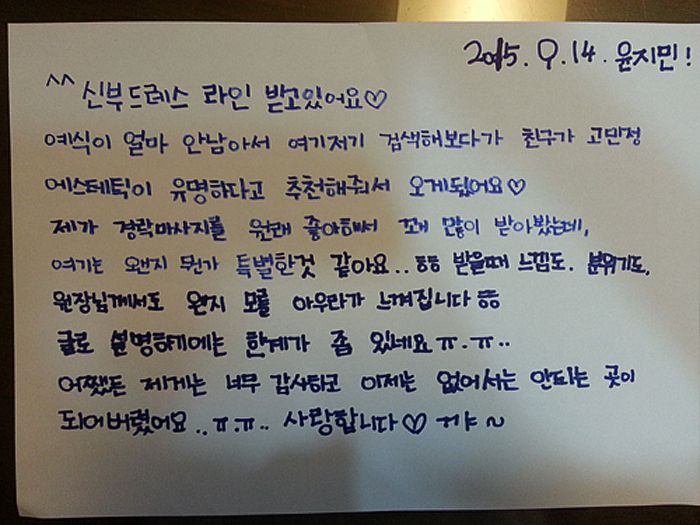 2015. 9. 14. 윤지민!
^^ 신부드레스 라인 받고있어요♡
예식이 얼마 안남아서 여기저기 검색해보다가 친구가 고민정
에스테틱이 유명하다고 추천해줘서 오게됐어요♡
제가 경락마사지를 원래 좋아해서 꽤 많이 받아봤는데,
여기는 왠지 뭔가 특별한것 같아요.. ㅎㅎ 받을때 느낌도. 분위기도.
원장님께서도 왠지 모를 아우라가 느껴집니다 ㅎㅎ
글로 설명하기에는 한계가 좀 있네요 ㅠ.ㅠ..
어쨌든 제게는 너무 감사하고 이제는 없어서는 안되는 곳이
되어버렸어요..ㅠ.ㅠ.. 사랑합니다♡ ~